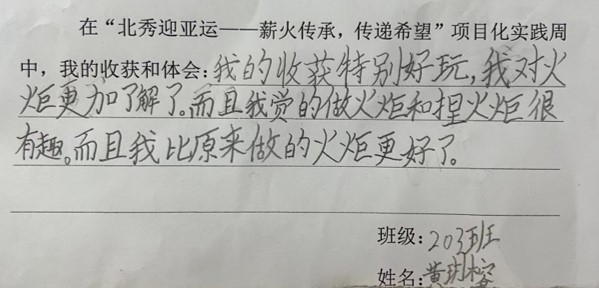 在“北秀迎亚运——薪火传承，传递希望”项目化实践周
中，我的收获和体会：我的收获特别好玩，我对火
炬更加了解了。而且我觉的做火炬和捏火炬很
有趣。而且我比原来做的火炬更好了。
班级：203班
姓名：黄玥榕